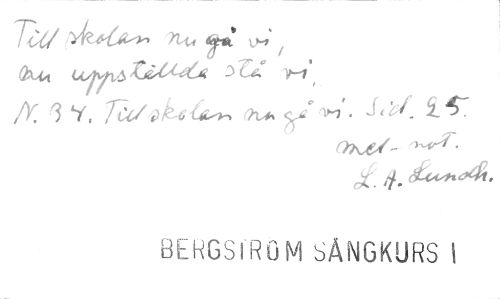 Till skolan nu gå vi,
nu uppställda stå vi,
N. 34. Till skolan nu gå vi. Sid. 25.
mel-not.
L. A. Lundh.
BERGSTRÖM SÅNGKURS I